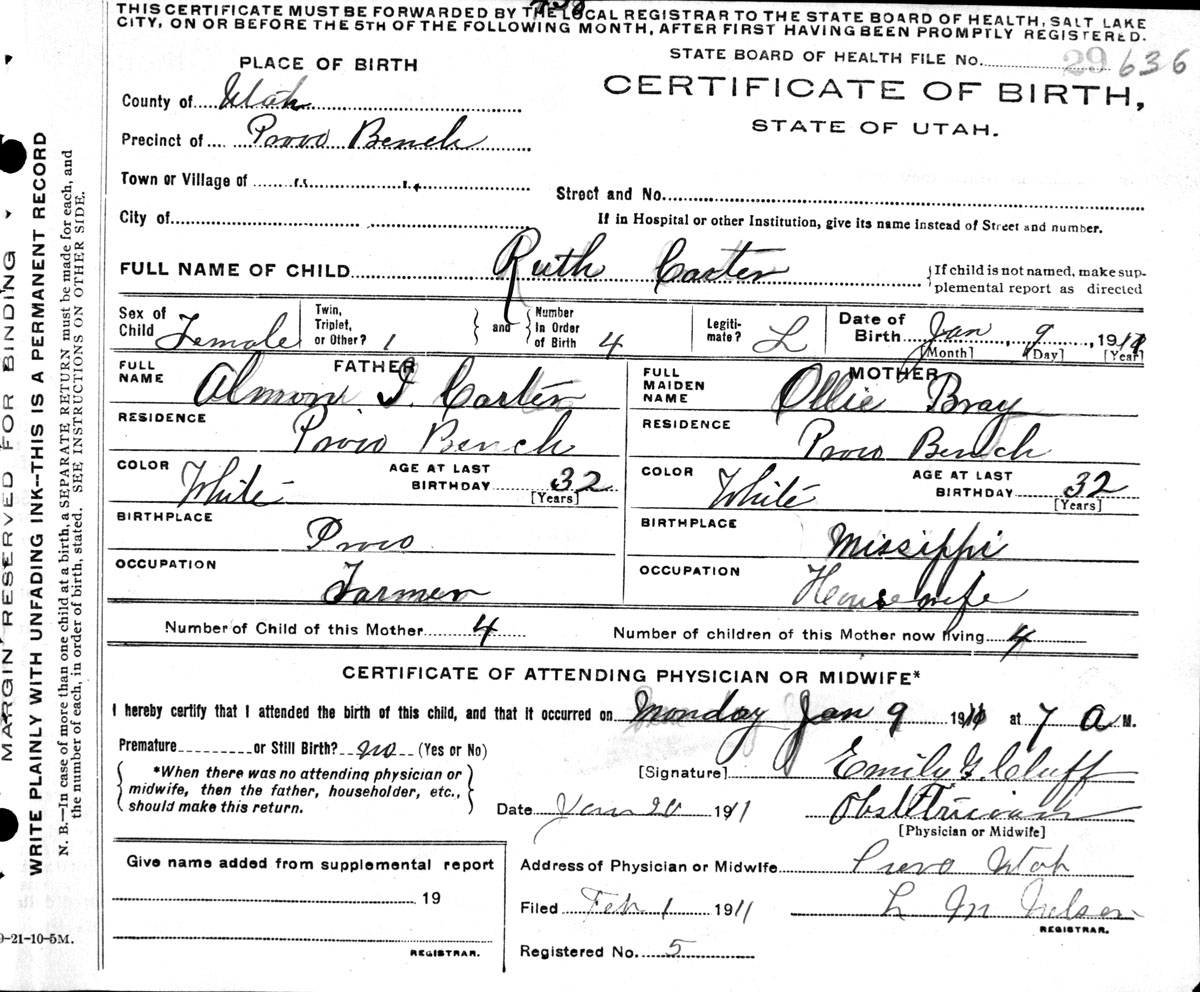 THIS CERTIFICATE MUST BE FORWARDED BY THE LOCAL REGISTRAR TO THE STATE BOARD OF HEALTH, SALT LAKE
CITY, ON OR BEFORE THE 5TH OF THE FOLLOWING MONTH, AFTER FIRST HAVING BEEN PROMPTLY REGISTERED.
STATE BOARD OF HEALTH FILE No. 29 636
PLACE OF BIRTH
CERTIFICATE OF BIRTH,
STATE OF UTAH.
County of Utah
Precinct of Provo Bench
Town or Village of " "
Street and No.
City of
If in Hospital or other Institution, give its name instead of Street and number.
FULL NAME OF CHILD Ruth Carter
{If child is not named, make sup-
plemental report as directed
Sex of Child Female
Twin, Triplet, or Other? 1 } and { Number In Order of Birth 4
Legiti- mate? L
Date of Birth Jan 9, 191
[Month] [Day] [Year]
FATHER
FULL NAME Almon J. Carter
MOTHER
FULL MAIDEN NAME Ollie Bray
RESIDENCE Provo Bench
RESIDENCE Provo Bench
COLOR White AGE AT LAST BIRTHDAY 32 [Years]
COLOR White AGE AT LAST BIRTHDAY 32 [Years]
BIRTHPLACE Provo
BIRTHPLACE Missippi
OCCUPATION Farmer
OCCUPATION Housewife
Number of Child of this Mother 4
Number of children of this Mother now living 4
CERTIFICATE OF ATTENDING PHYSICIAN OR MIDWIFE*
I hereby certify that I attended the birth of this child, and that it occurred on Monday Jan 9 191 at 7 a M.
Premature or Still Birth? no (Yes or No)
*When there was no attending physician or
midwife, then the father, householder, etc.,
should make this return.
[Signature] Emily G Cluff
Date Jan 20 1911 Obstetrician
[Physician or Midwife]
Give name added from supplemental report
19
REGISTRAR.
Address of Physician or Midwife Provo Utah
Filed Feb 1 1911 L M Nelson
REGISTRAR.
Registered No. 5
MARGIN RESERVED FOR BINDING
WRITE PLAINLY WITH UNFADING INK--THIS IS A PERMANENT RECORD
N. B.—In case of more than one child at a birth, a SEPARATE RETURN must be made for each, and
the number of each, in order of birth, stated. SEE INSTRUCTIONS ON OTHER SIDE.
9-21-10-5M.